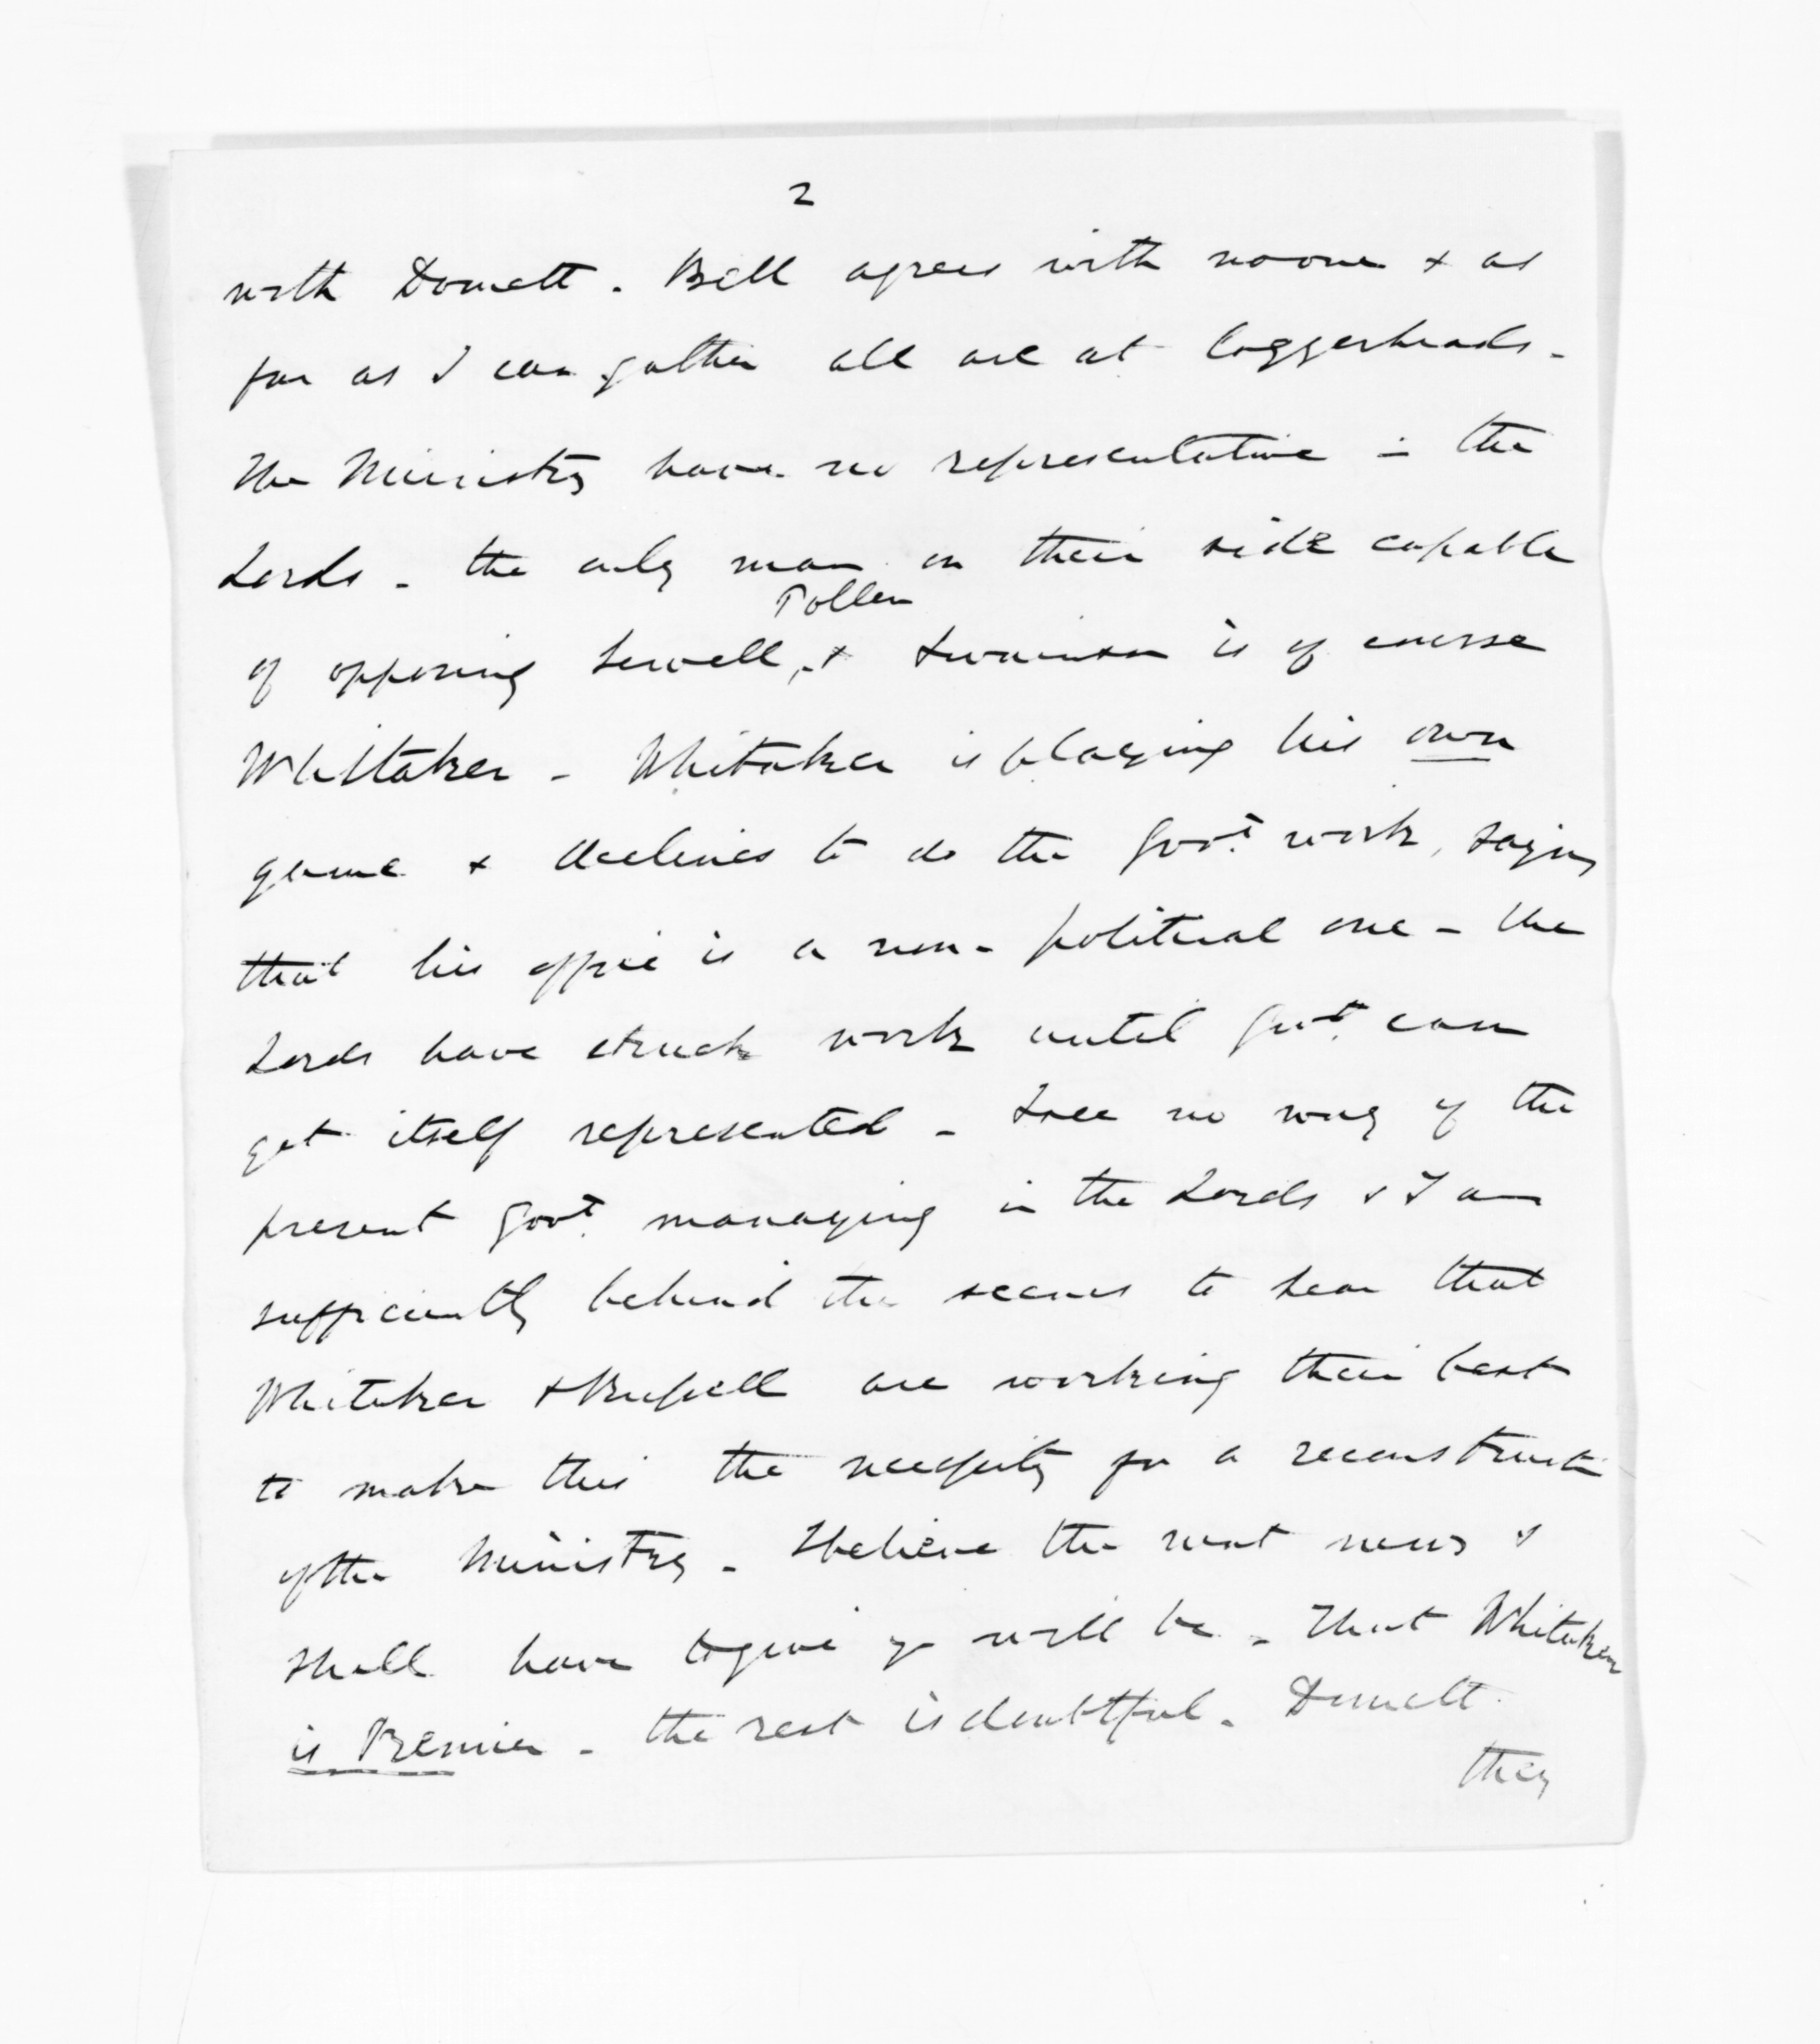 2
with Domett. Bell agrees with noone & as
far as I can gather all are at loggerheads -
The Ministry have no representative in the
Lords - the only man on their side capable
Pollen
of opposing Sewell, & Swainson is of course
Whitaker - Whitaker is playing his own
game & declines to do the Govt work, saying
that his office is a non-political one - the
Lords have struck work until Govt can
get itself represented - I see no way of the
present Govt managing in the Lords & I am
sufficiently behind the scenes to hear that
Whitaker & Russell are working their best
to make this the necessity for a reconstruct
of the Ministry - I believe the next news I
shall have to give yo will be - That Whitaker
is Premier - the rest is doubtful. Domett
they